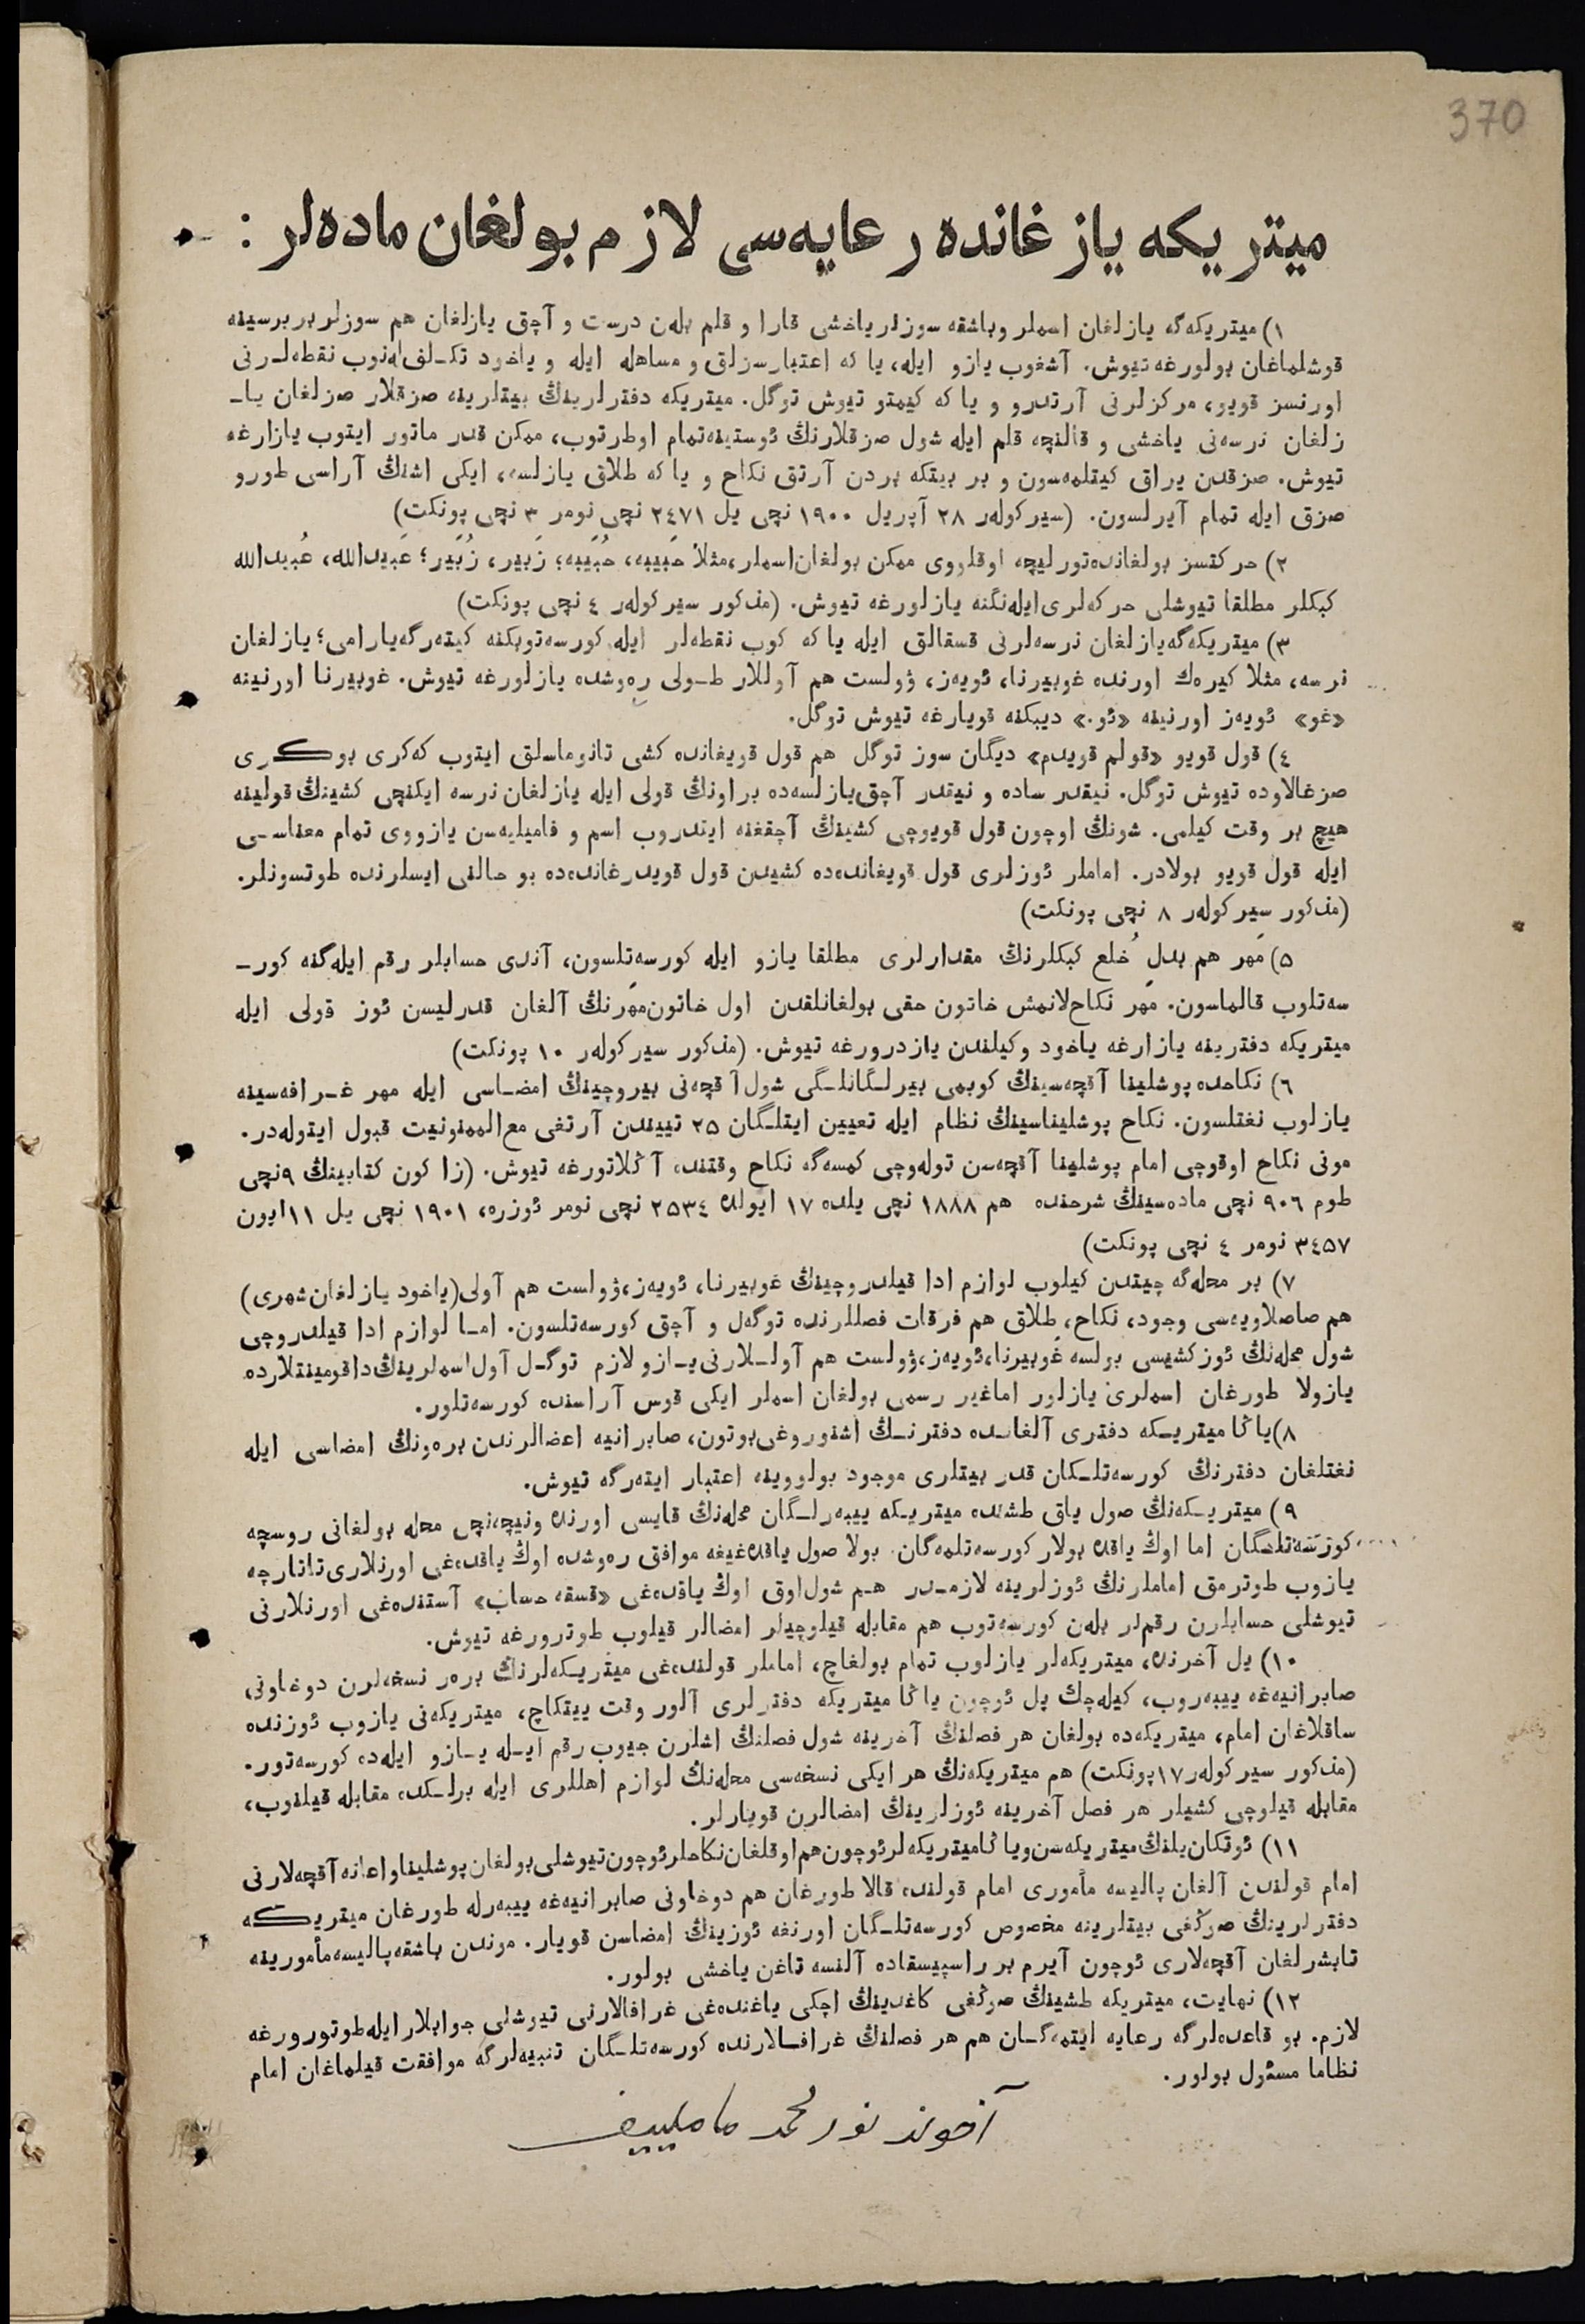 370
میتریکه یازغانده رعایه‌سی لازم بولغان ماده‌لر :
١) میتریکه‌گه یازلغان اسملر وباشقه سوزلر یاخشی قارا و قلم بله‌ن درست و آچق یازلغان هم سوزلر بر برسینه
قوشلماغان بولورغه تیوش. آشغوب یازو ایله، یا که اعتبارسزلق و مساهله ایله و یاخود تکلف له‌نوب نقطه‌لرنی
اورنسز قویو، مرکزلرنی آرتدرو و یا که کیمتو تیوش توگل. میتریکه دفترلرینڭ بیتلرینه صزقلار صزلغان یا-
زلغان نرسه‌نی یاخشی و قالنچه قلم ایله شول صزقلارنڭ ئوستینه تمام اوطرتوب، ممکن قدر ماتور ایتوب یازارغه
تیوش. صزقدن یراق کیتلمه‌سون و بر بیتکه بردن آرتق نکاح و یا که طلاق یازلسه، ایکی اشنڭ آراسی طورو
صزق ایله تمام آیرلسون. (سیرکولەر ٢٨ آپریل ١٩٠٠ نچی یل ٢٤٧١ نچی نومر ٣ نچی پونکت)
٢) حرکتسز بولغانده تورلیچه اوقلووی ممکن بولغان اسملر، مثلا حَبیبه، حُبَیبه؛ زَبیر، زُبَیر؛ عَبیدالله، عُبیدالله
کبکلر مطلقا تیوشلی حرکه‌لری ایله‌نگنه یازلورغه تیوش. (مذکور سیرکولەر ٤ نچی پونکت)
٣) میتریکه‌گه یازلغان نرسه‌لرنی قسقالق ایله یا که کوب نقطه‌لر ایله کورسه‌توبکنه کیته‌رگه یارامی؛ یازلغان
نرسه، مثلا کیره‌ك اورنده غوبیرنا، ئویه‌ز، ۋولست هم آوللار طولی ره‌وشده یازلورغه تیوش. غوبیرنا اورنینه
«غو» ئویه‌ز اورنینه «ئو.» دیبکنه قویارغه تیوش توگل.
٤) قول قویو «قولم قویدم» دیگان سوز توگل هم قول قویغانده کشی تانوماسلق ایتوب که‌کری بوکری
صزغالاوده تیوش توگل. نیقدر ساده و نیتدر آچق یازلسه‌ده براونڭ قولی ایله یازلغان نرسه ایکنچی کشینڭ قولینه
هیچ بر وقت کیلمی. شونڭ اوچون قول قویوچی کشینڭ آچقغنه ایتدروب اسم و فامیلیه‌سن یازووی تمام معناسی
ایله قول قویو بولادر. اماملر ئوزلری قول قویغانده‌ده کشیدن قول قویدرغانده‌ده بو حالنی ایسلرنده طوتسونلر.
(مذکور سیرکولەر ٨ نچی پونکت)
٥) مَهر هم بدل خُلع کبکلرنڭ مقدارلری مطلقا یازو ایله کورسه‌تلسون، آندی حسابلر رقم ایله‌گنه کور-
سه‌تلوب قالماسون. مَهر نکاح‌لانمش خاتون حقی بولغانلقدن اول خاتون مَهرنڭ آلغان قدرلیسن ئوز قولی ایله
میتریکه دفترینه یازارغه یاخود وکیلندن یازدرورغه تیوش. (مذکور سیرکولەر ١٠ پونکت)
٦) نکاحده پوشلینا آقچه‌سینڭ کوبمی بیرلگانلگی شول آقچه‌نی بیروچینڭ امضاسی ایله مهر غرافه‌سینه
یازلوب نغتلسون. نکاح پوشلیناسینڭ نظام ایله تعیین ایتلگان ٢٥ تییندن آرتغی مع‌الممنونیت قبول ایتوله‌در.
مونی نکاح اوقوچی امام پوشلینا آقچه‌سن توله‌وچی کمسه‌گه نکاح وقتنده آڭلاتورغه تیوش. (زاکون کتابینڭ ٩نچی
طوم ٩٠٦ نچی ماده‌سینڭ شرحنده هم ١٨٨٨ نچی یلده ١٧ ایولده ٢٥٣٤ نچی نومر ئوزره، ١٩٠١ نچی یل ١١ ایون
٣٤٥٧ نومر ٤ نچی پونکت)
٧) بر محله‌گه چیتدن کیلوب لوازم ادا قیلدروچینڭ غوبیرنا، ئویه‌ز، ۋولست هم آولی (یاخود یازلغان شهری)
هم صاصلاویه‌سی وجود، نکاح، طلاق هم فرقات فصللرنده توگه‌ل و آچق کورسه‌تلسون. اما لوازم ادا قیلدروچی
شول محله‌نڭ ئوز کشیسی بولسه غوبیرنا، ئویه‌ز، ۋولست هم آوللارنی یازو لازم توگل آول اسملرینڭ داقومینتلارده
یازولا طورغان اسملری یازلور اماغیر رسمی بولغان اسملر ایکی قوس آراسنده کورسه‌تلور.
٨) یاڭا میتریکه دفتری آلغانده دفترنڭ اشنوروغی بوتون، صابرانیه اعضالرندن بره‌ونڭ امضاسی ایله
نغتلغان دفترنڭ کورسه‌تلکان قدر بیتلری موجود بولووینه اعتبار ایته‌رگه تیوش.
٩) میتریکه‌نڭ صول یاق طشنده میتریکه ییبه‌رلگان محله‌نڭ قایسی اورنده ونیچه‌نچی محله بولغانی روسچه
کورسه‌تلگان اما اوڭ یاقده بولار کورسه‌تلمه‌گان. بولا صول یاقده‌غیغه موافق ره‌وشده اوڭ یاقده‌غی اورنلاری تاتارچه
یازوب طوترمق اماملرنڭ ئوزلرینه لازمدر هم شول اوق اوڭ یاقده‌غی «قسقه حساب» آستنده‌غی اورنلارنی
تیوشلی حسابلرن رقملر بله‌ن کورسه‌توب هم مقابله قیلوچیلر امضالر قیلوب طوترورغه تیوش.
١٠) یل آخرنده، میتریکه‌لر یازلوب تمام بولغاچ، اماملر قولنده‌غی میتریکه‌لرنڭ بره‌ر نسخه‌لرن دوخاونی
صابرانیه‌غه ییبه‌روب، کیله‌چك یل ئوچون یاڭا میتریکه دفترلری آلور وقت ییتکاچ، میتریکه‌نی یازوب ئوزنده
ساقلاغان امام، میتریکه‌ده بولغان هر فصلنڭ آخرینه شول فصلنڭ اشلرن جیوب رقم ایله یازو ایله‌ده کورسه‌تور.
(مذکور سیرکولەر ١٧ پونکت) هم میتریکه‌نڭ هر ایکی نسخه‌سی محله‌نڭ لوازم اهللری ایله برلکده مقابله قیلنوب،
مقابله قیلوچی کشیلر هر فصل آخرینه ئوزلرینڭ امضالرن قویارلر.
١١) ئوتکان یلنڭ میتریکه‌سن ویاڭا میتریکه‌لر ئوچون هم اوقلغان نکاحلر ئوچون تیوشلی بولغان پوشلینا و اعانه آقچه‌لارنی
امام قولندن آلغان پالیسه مأموری امام قولنده قالا طورغان هم دوخاونی صابرانیه‌غه ییبه‌رله طورغان میتریکه
دفترلرینڭ صوڭغی بیتلرینه مخصوص کورسه‌تلگان اورنغه ئوزینڭ امضاسن قویار. موندن باشقه پالیسه مأمورینه
تابشرلغان آقچه‌لاری ئوچون آیرم بر راسپیسقاده آلنسه تاغن یاخشی بولور.
١٢) نهایت، میتریکه طشینڭ صوڭغی کاغدینڭ اچکی یاغنده‌غی غرافالارنی تیوشلی جوابلار ایله طوتورورغه
لازم. بو قاعده‌لرگه رعایه ایتمه‌گان هم هر فصلنڭ غرافالارنده کورسه‌تلگان تنبیه‌لرگه موافقت قیلماغان امام
نظاما مسئول بولور.
آخوند نور محمد ماملییف